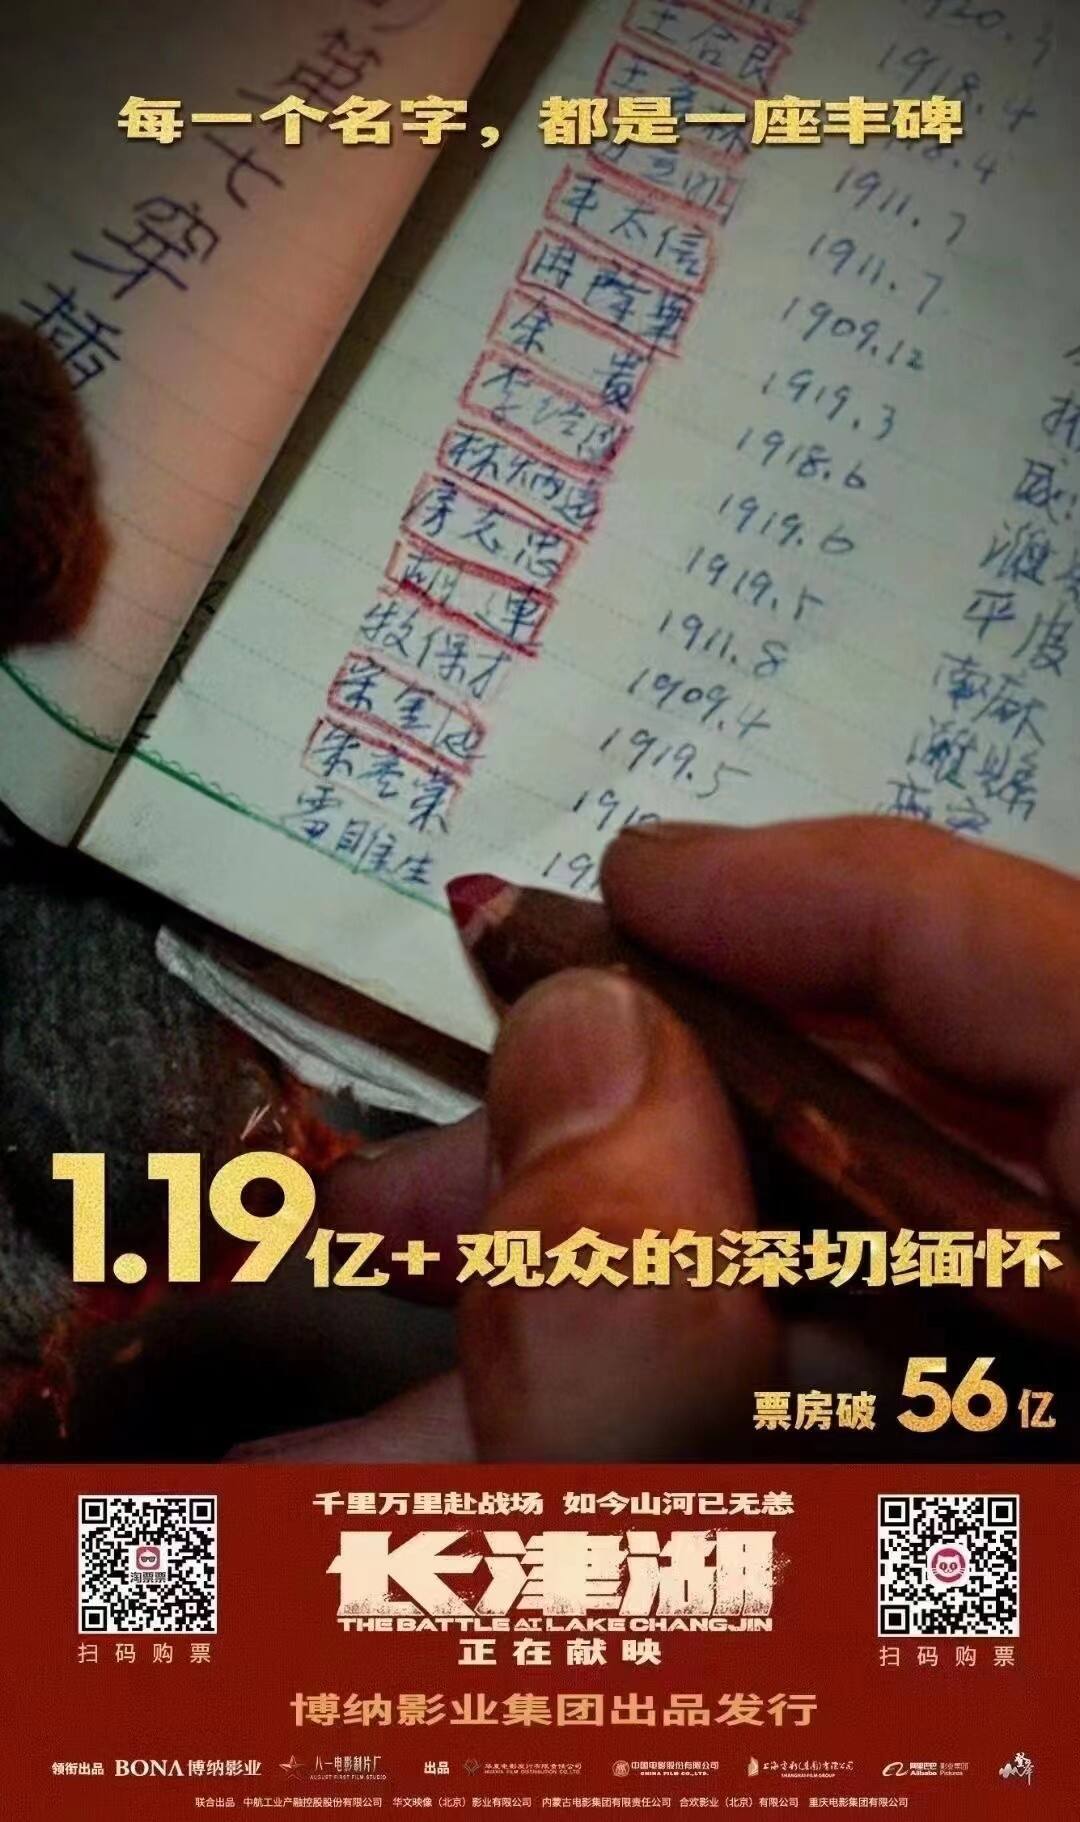 每一个名字，都是一座丰碑
第七穿插
王合良
1920.
1918.4
8.4
1911.7
辛太信
1911.7
1909.12
余贵
1919.3
1918.6
林炳远
1919.6
房志忠
1919.5
1911.8
牧保才
1909.4
宋金运
1919.5
朱彦荣
191
雷睢生
19
平度
潍县
1.19亿+观众的深切缅怀
票房破 56亿
千里万里赴战场 如今山河已无恙
长津湖
THE BATTLE AT LAKE CHANGJIN
正在献映
淘票票
扫码购票
扫码购票
博纳影业集团出品发行
领衔出品 BONA博纳影业 八一电影制片厂 出品 华夏电影发行有限责任公司 中国电影股份有限公司 上海电影(集团)有限公司 阿里巴巴影业集团
AUGUST FIRST FILM STUDIO HUAXIA FILM DISTRIBUTION CO.LTD. CHINA FILM CO.,LTD. SHANGHAI FILM GROUP Alibaba Pictures
联合出品 中航工业产融控股股份有限公司 华文映像（北京）影业有限公司 内蒙古电影集团有限责任公司 合欢影业（北京）有限公司 重庆电影集团有限公司